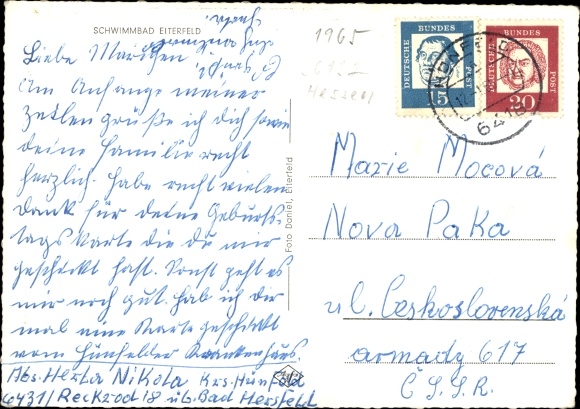 SCHWIMMBAD EITERFELD
Liebe
Am Anfange meiner
Zeilen grüße ich dich sowie
deine Familie recht
herzlich. Habe recht vielen
Dank für deine Geburts-
tagskarte die du mir
geschickt hast. Sonst geht es
mir noch gut. hab ich dir
mal eine Karte geschickt
vom Hünfelder Krankenhaus.
Abs. Herta Nikola Krs. Hünfeld
6431/Reckrod 18 üb. Bad Hersfeld
Foto Daniel, Eiterfeld
1965
Hessen
DEUTSCHE BUNDES POST
5
DEUTSCHE BUNDES POST
20
Marie Mocová
Nova Paka
ul. Československá
armady 617
Č.S.S.R.